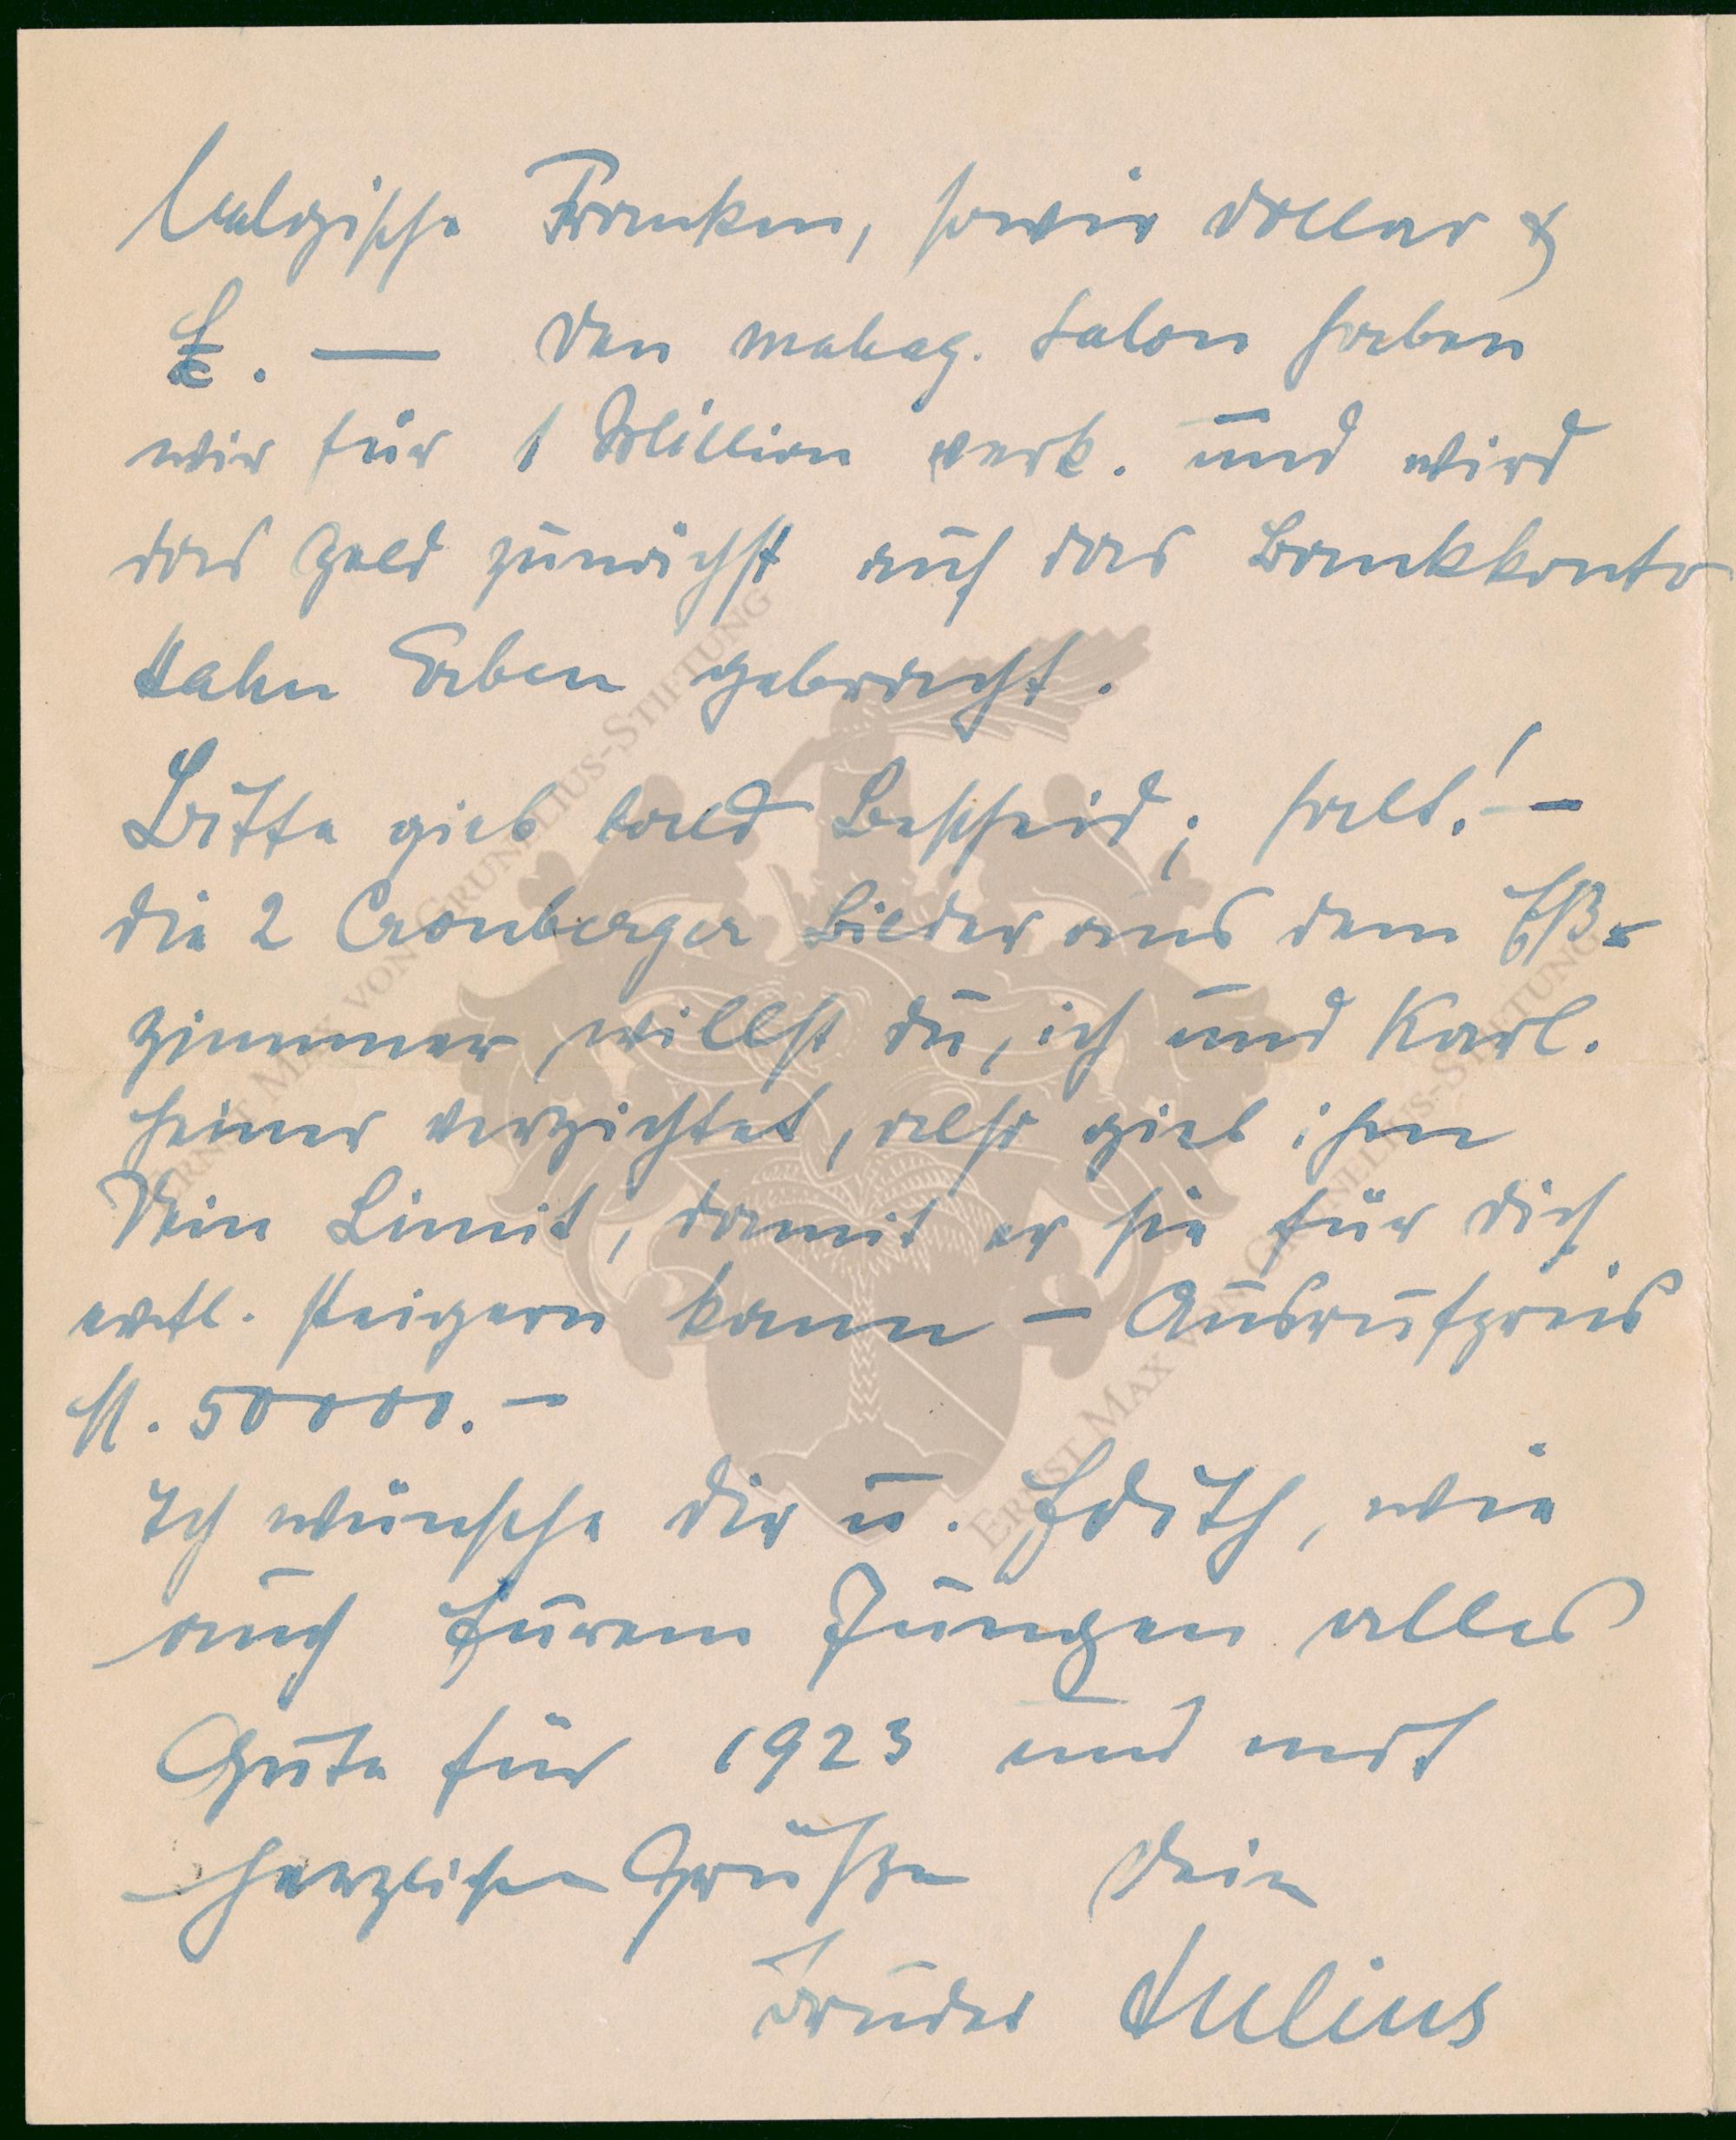 belgische Franken, sowie Dollar &
£. — Den mahag. Salon haben
wir für 1 Million verk. und wird
das Geld zunächst auf das Bankkonto
Hahn Erben gebracht.
Bitte gieb bald Bescheid; halt! —
die 2 Cronberger Bilder aus dem Eß-
zimmer willst du, ich und Karl.
Heiner verzichtet, also gieb ihm
Dein Limit, damit er sie für dich
evtl. steigern kann — Ausrufpreis
M. 50000.—
Ich wünsche dir u. Edith, wie
auch Eurem Jungen alles
Gute für 1923 und mit
herzlichen Grüßen Dein
Bruder Julius
ERNST MAX VON GRUNELIUS-STIFTUNG
ERNST MAX VON GRUNELIUS-STIFTUNG